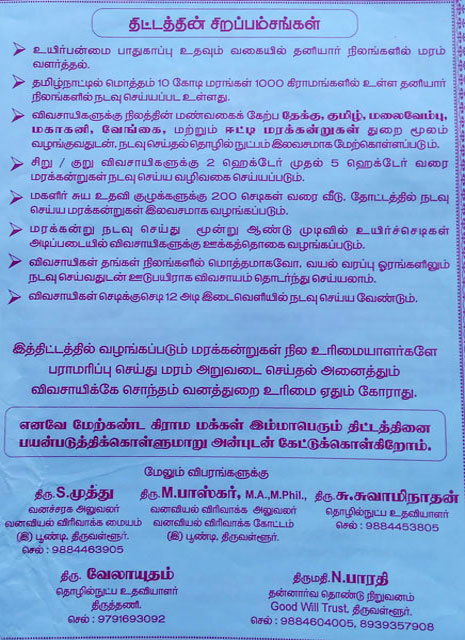 திட்டத்தின் சிறப்பம்சங்கள்
உயிர்பன்மை பாதுகாப்பு உதவும் வகையில் தனியார் நிலங்களில் மரம்
வளர்த்தல்.
தமிழ்நாட்டில் மொத்தம் 10 கோடி மரங்கள் 1000 கிராமங்களில் உள்ள தனியார்
நிலங்களில் நடவு செய்யப்பட உள்ளது.
விவசாயிகளுக்கு நிலத்தின் மண்வகைக் கேற்ப தேக்கு, குமிழ், மலைவேம்பு,
மகாகனி, வேங்கை, மற்றும் ஈட்டி மரக்கன்றுகள் துறை மூலம்
வழங்குவதுடன், நடவு செய்தல் தொழில் நுட்பம் இலவசமாக மேற்கொள்ளப்படும்.
சிறு / குறு விவசாயிகளுக்கு 2 ஹெக்டேர் முதல் 5 ஹெக்டேர் வரை
மரக்கன்றுகள் நடவு செய்ய வழிவகை செய்யப்படும்.
மகளிர் சுய உதவி குழுக்களுக்கு 200 செடிகள் வரை வீடு, தோட்டத்தில் நடவு
செய்ய மரக்கன்றுகள் இலவசமாக வழங்கப்படும்.
மரக்கன்று நடவு செய்து மூன்று ஆண்டு முடிவில் உயிர்செடிகள்
அடிப்படையில் விவசாயிகளுக்கு ஊக்கத்தொகை வழங்கப்படும்.
விவசாயிகள் தங்கள் நிலங்களில் மொத்தமாகவோ, வயல் வரப்பு ஓரங்களிலும்
நடவு செய்வதுடன் ஊடுபயிராக விவசாயம் தொடர்ந்து செய்யலாம்.
விவசாயிகள் செடிக்குசெடி 12 அடி இடைவெளியில் நடவு செய்ய வேண்டும்.
இத்திட்டத்தில் வழங்கப்படும் மரக்கன்றுகள் நில உரிமையாளர்களே
பராமரிப்பு செய்து மரம் அறுவடை செய்தல் அனைத்தும்
விவசாயிக்கே சொந்தம் வனத்துறை உரிமை ஏதும் கோராது.
எனவே மேற்கண்ட கிராம மக்கள் இம்மாபெரும் திட்டத்தினை
பயன்படுத்திக்கொள்ளுமாறு அன்புடன் கேட்டுக்கொள்கிறோம்.
மேலும் விபரங்களுக்கு
திரு.S.முத்து
வனச்சரக அலுவலர்
வனவியல் விரிவாக்க மையம்
(இ) பூண்டி, திருவள்ளூர்.
செல் : 9884463905
திரு.M.பாஸ்கர், M.A.,M.Phil.,
வனவியல் விரிவாக்க அலுவலர்
வனவியல் விரிவாக்க கோட்டம்
(இ) பூண்டி, திருவள்ளூர்.
திரு.சு.சுவாமிநாதன்
தொழில்நுட்ப உதவியாளர்
செல் : 9884453805
திரு. வேலாயுதம்
தொழில்நுட்ப உதவியாளர்
திருத்தணி.
செல் : 9791693092
திருமதி.N.பாரதி
தன்னார்வ தொண்டு நிறுவனம்
Good Will Trust, திருவள்ளூர்.
செல் : 9884604005, 8939357908